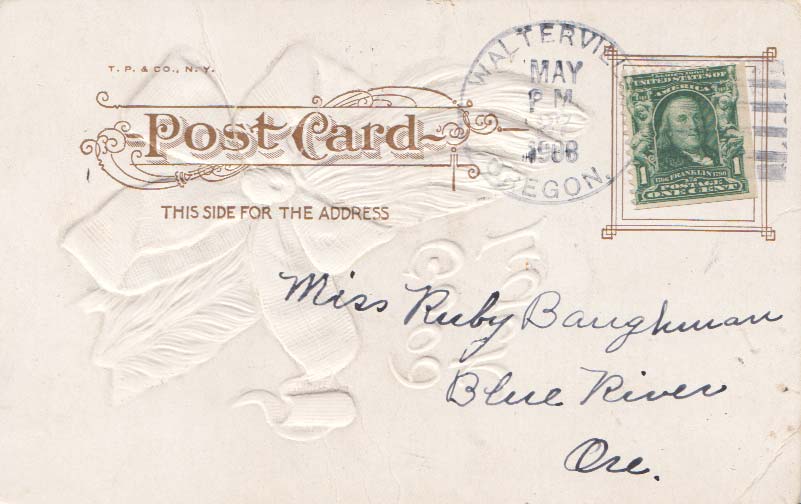 T. P. & CO., N. Y.
Post Card
THIS SIDE FOR THE ADDRESS
WALTERVI
MAY
P M
1908
OREGON.
UNITED STATES OF
AMERICA
1 FRANKLIN 1
POSTAGE
ONE CENT
Miss Ruby Baughman
Blue River
Ore.